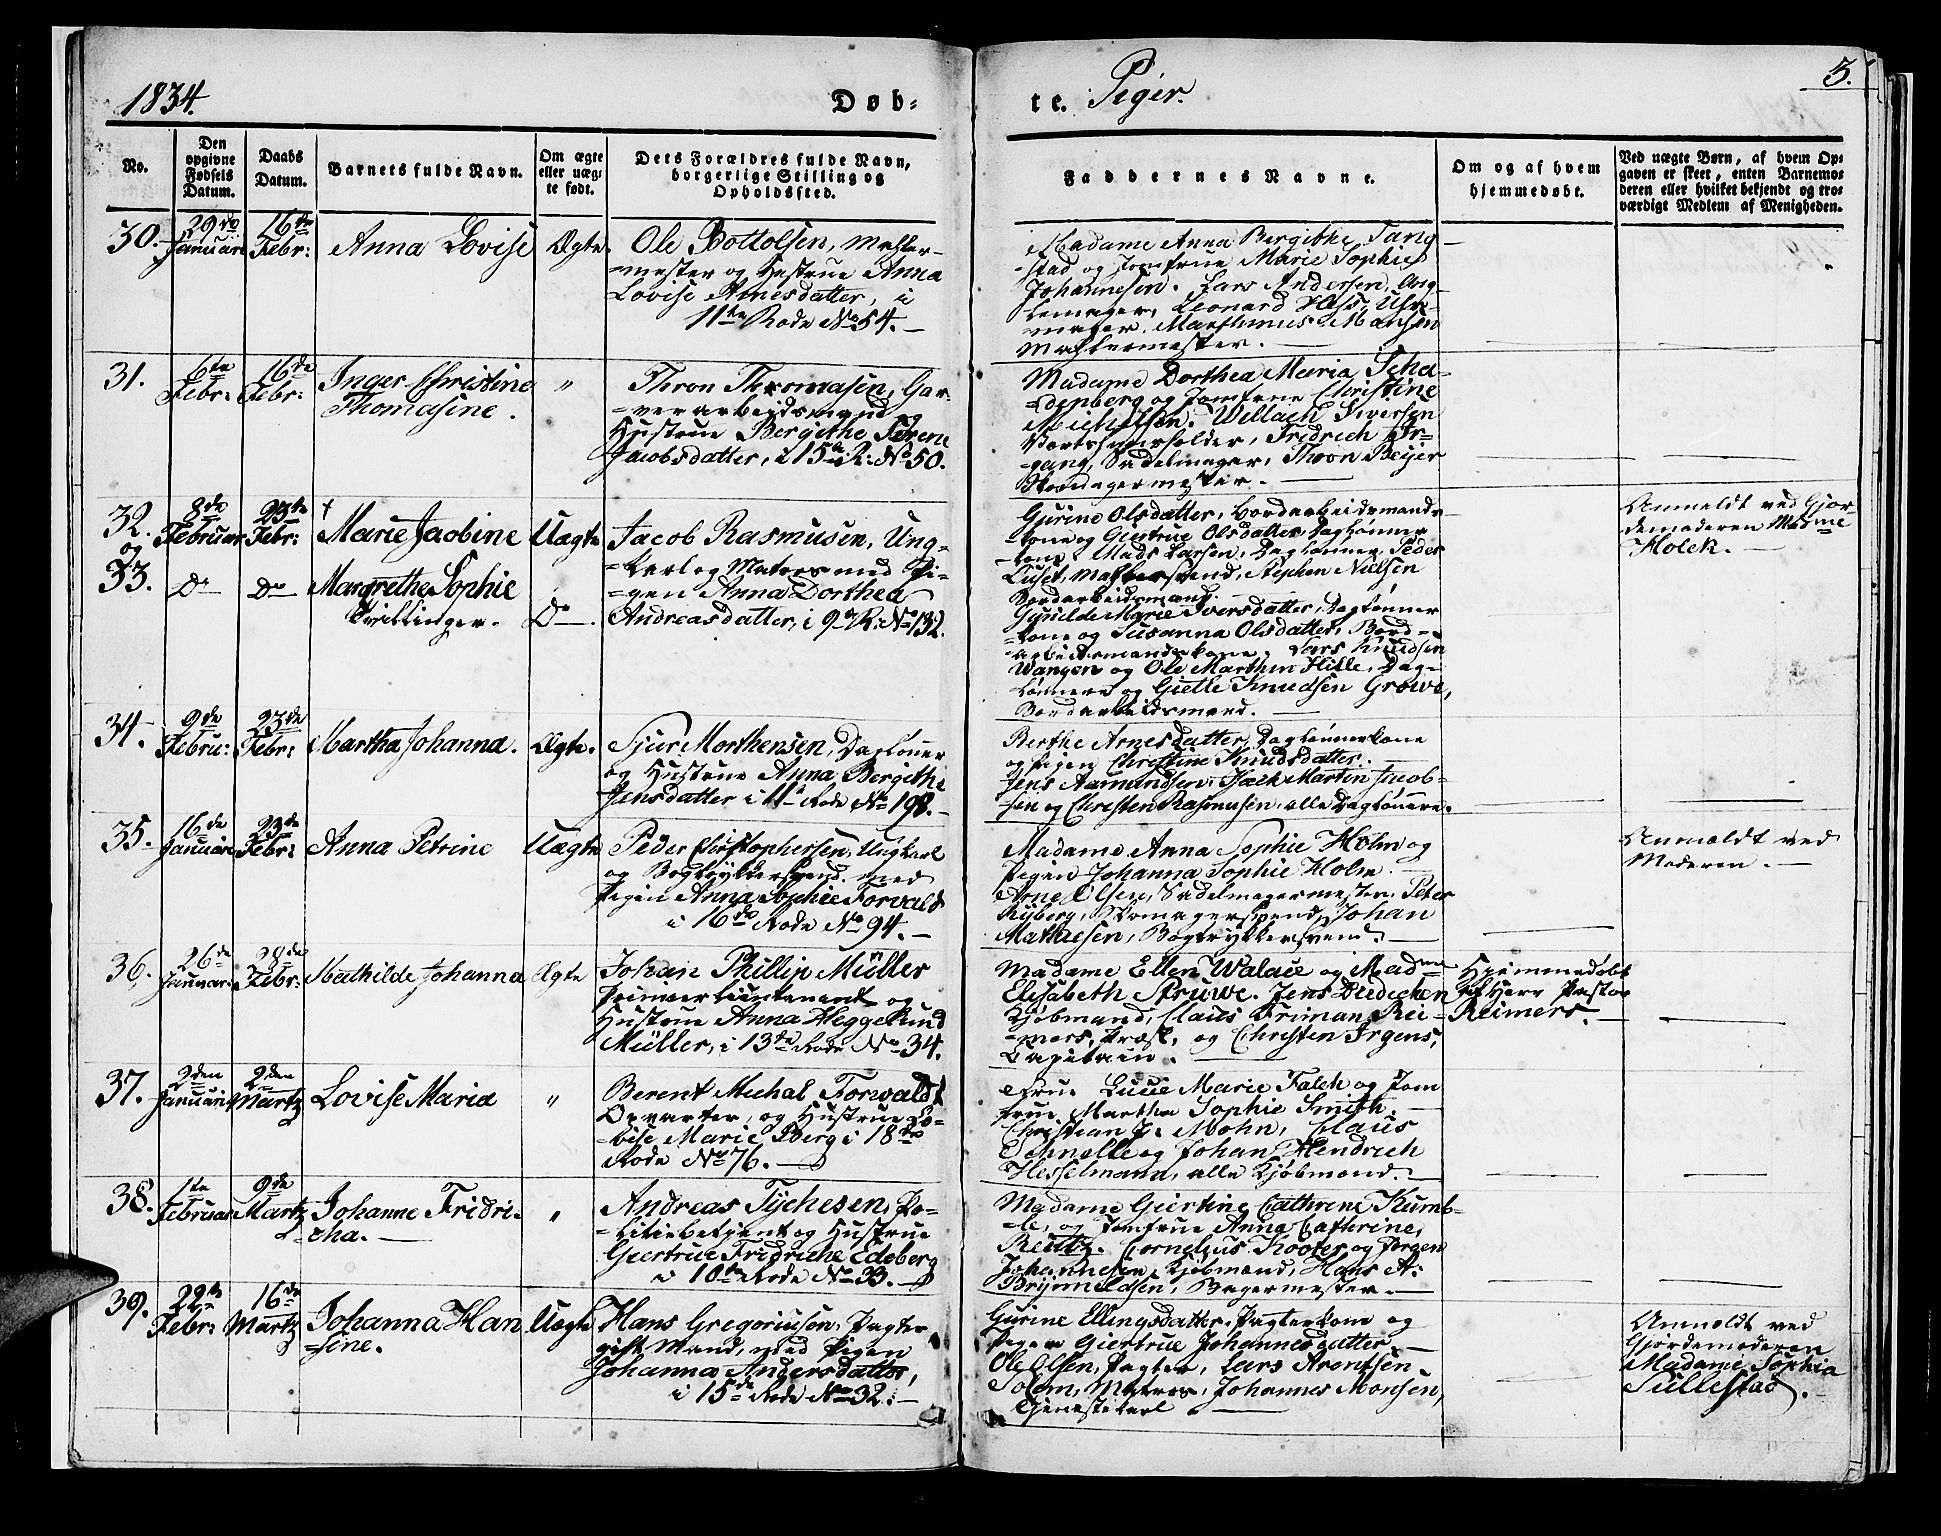 1834.
Døb-
te. Piger.
3.
No.
Den opgivne Fødsels Datum.
Daabs Datum.
Barnets fulde Navn.
Om ægte eller uægte født.
Dets Forældres fulde Navn, borgerlige Stilling og Opholdssted.
Faddernes Navne.
Om og af hvem hjemmedøbt.
Ved uægte Børn, af hvem Opgaven er skeet, enten Barnemoderen eller hvilket bekjendt og troværdigt Medlem af Menigheden.
30. 29de Januari 16de Febr: Anna Lovise Ægte.
Ole Bottolsen, Maskermester og Hustrue Anna
Lovise Arnesdatter, i
11te Rode No 54.
Madame Anna Bergithe Tang-
stad og Jomfrue Marie Sophie
Johannesen. Lars Andersen,
Leonard Hess, Uhr-
mager, Marthinus Monsen
31. 6te Febr: 16de Febr: Inger Christine
Thomasine. "
Thron Thromasen, Gar-
verarbeidsmand og
Hustrue Bergithe Serene
Jacobsdatter, i 15de R: No 50.
Madame Dorthea Maria Scha-
denberg og Jomfrue Christine
Michelsen. Willach Siversen
Vertshuusholder, Fridrich Ir-
gang, Sadelmager, Thron Beijer
32. 8de Februar 23de Febr: Marie Jacobine Uægte
og
33. Do Do Margrethe Sophie
Tvillinger. Do
Jacob Rasmusen, Ung-
karl og Matros med Pi-
gen Anna Dorthea
Andreasdatter, i 9de R: No 132.
Gjurine Olsdatter, Bordarbeidsmands-
kone og Gertrue Olsdatter Daglønner-
kone. Mads Larsen, Daglønner, Peder
Stephen Nielsen
Bordarbeidsmand.
Gunilde Marie Iversdatter, Dagløнner
kone og Susanna Olsdatter, Bord-
arbeidsmandskone, Lars Knudsen
Wangen og Ole Marthin Hille, Dag-
lønnere og Gietle Knudsen Growe,
Bordarbeidsmand.
Anmeldt ved Gjor-
demoderen Madme
Holck.
34. 9de Februar: 23de Febr: Martha Johanna. Ægte.
Sjur Morthensen, Dagløner
og Hustrue Anna Bergithe
Jensdatter i 11te Rode No 198.
Berthe Arnesdatter, Daglønnerkone
og Pigen Christine Knudsdatter.
Jens Aamundsen, Falk Martin Jacob-
sen og Christen Rasmusen, alle Daglønere.
35. 16de Januari 23de Febr: Anna Petrine Uægte
Peder Christophersen, Ungkarl
og Bogtrykkersvend med
Pigen Anna Sophie Forvald
i 16de Rode No 94.
Madame Anna Sophie Holm og
Pigen Johanna Sophie Holm.
Arne Olsen, Sadelmagermester, Peter
Ryberg, Skomagersvend, Johan
Mathiesen, Bogtrykkersvend.
Anmeldt ved
Moderen.
36. 26de Januari 28de Febr: Mathilde Johanna Ægte
Johan Phillip Müller
Premierlieutenant og
Hustrue Anna Heggelund
Müller, i 13de Rode No 34.
Madame Ellen Walace og Madme
Elisabeth Struwe. Jens Didichen
Kjøbmand, Claus Friman Rei-
mers, Præst, og Christen Irgens,
Capitain.
Hjemmedøbt
af Herr Pastor
Reimers.
37. 2den Januari 2den Martz Lovise Maria "
Berent Michal Forwaldt
Opvarter, og Hustrue Lo-
vise Marie Berg i 18de
Rode No 76.
Frue Lucie Marie Falch og Jom
frue Martha Sophie Smith.
Christian J. Mohn, Claus
Schnelle og Johan Hendrich
Hesselmann, alle Kjøbmænd.
38. 1te Februar 9de Martz Johanne Fridri-
cha. "
Andreas Tychesen, Po-
litiebetjent og Hustrue
Giertrue Fridriche Edeberg
i 10de Rode No 33.
Madame Giertine Cathrene Kumb-
le, og Jomfrue Anna Cathrine,
Reutz. Cornelius Kooter og Jørgen
Johannesen, Kjøbmænd, Hans A.
Brynnildsen, Bagermester.
39. 22de Febr: 16de Martz Johanna Han
sine. Uægte
Hans Gregoriusen, Pagter
gift Mand, med Pigen
Johanna Andersdatter,
i 15de Rode No 32.
Gurine Ellingsdatter, Pagterkone og
Pigen Giertrue Johannesdatter.
Ole Olsen, Pagter, Lars Arentsen
Solem, Matros, Johannes Monsen,
Tjenestekarl
Anmeldt ved
Gjordemoderen
Madame Sophia
Sillestad.